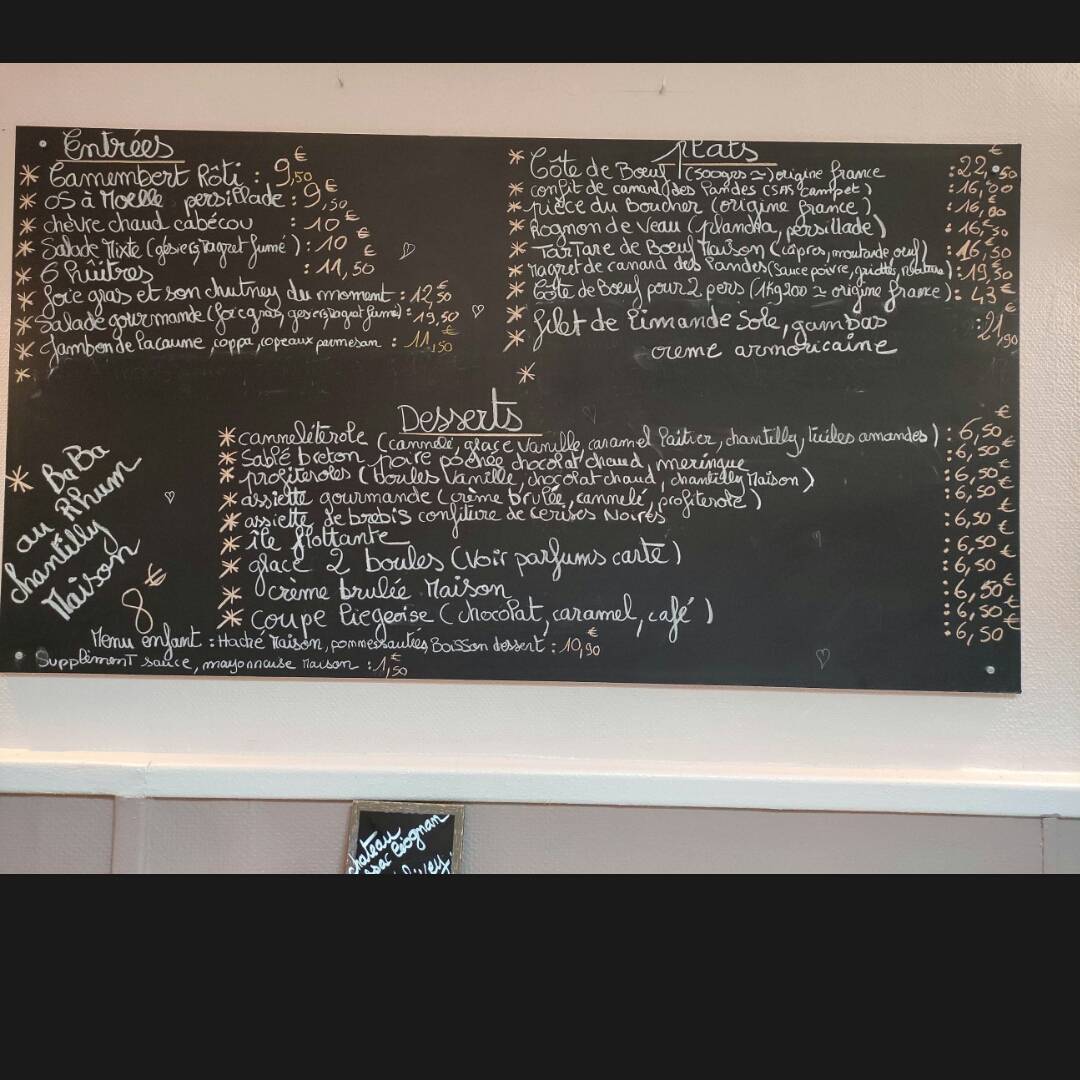 Entrées
* Camembert Rôti : 9,50€
* os à Moelle persillade : 9,50€
* chèvre chaud cabécou : 10€
* Salade Mixte (gésiers, magret fumé) : 10€
* 6 huîtres : 11,50€
* foie gras et son chutney du moment : 12,50€
* Salade gourmande (foie gras, gesiers, magret fumé) : 19,50
* Jambon de Lacaune, coppa, copeaux parmesan : 11,50€
*
plats
* Côte de Boeuf (500grs ≃) origine france : 22,50€
* confit de canard des Landes (SAS Campet) : 16,00
* pièce du Boucher (origine france) : 16,90
* Rognon de Veau (plancha, persillade) : 16,50
* TarTare de Boeuf Maison (câpres, moutarde oeuf) : 16,50
* Magret de canard des Landes (sauce poivre, griottes, nature) : 19,50
* Côte de Boeuf pour 2 pers (1kg200 ≃ origine france) : 43€
* filet de Limande Sole, gambas : 21,90€
creme armoricaine
*
Desserts
* canneléterole (cannelé, glace vanille, caramel laitier, chantilly, tuiles amandes) : 6,50€
* Sablé breton poire pochée chocolat chaud, meringue : 6,50€
* profiteroles (boules Vanille, chocolat chaud, chantilly Maison) : 6,50€
* assiette gourmande (crème brulée, cannelé, profiterole) : 6,50€
* assiette de brebis confiture de cerises Noires : 6,50€
* île flottante : 6,50€
* glace 2 boules (voir parfums carte) : 6,50
* crème brulée Maison : 6,50€
* coupe Liegeoise (chocolat, caramel, café) : 6,50€
: 6,50€
* BaBa
au Rhum
chantilly
Maison
8€
Menu enfant : Haché Maison, pommes sautées, Boisson dessert : 10,90€
Supplément sauce, mayonnaise Maison : 1,50€
chateau